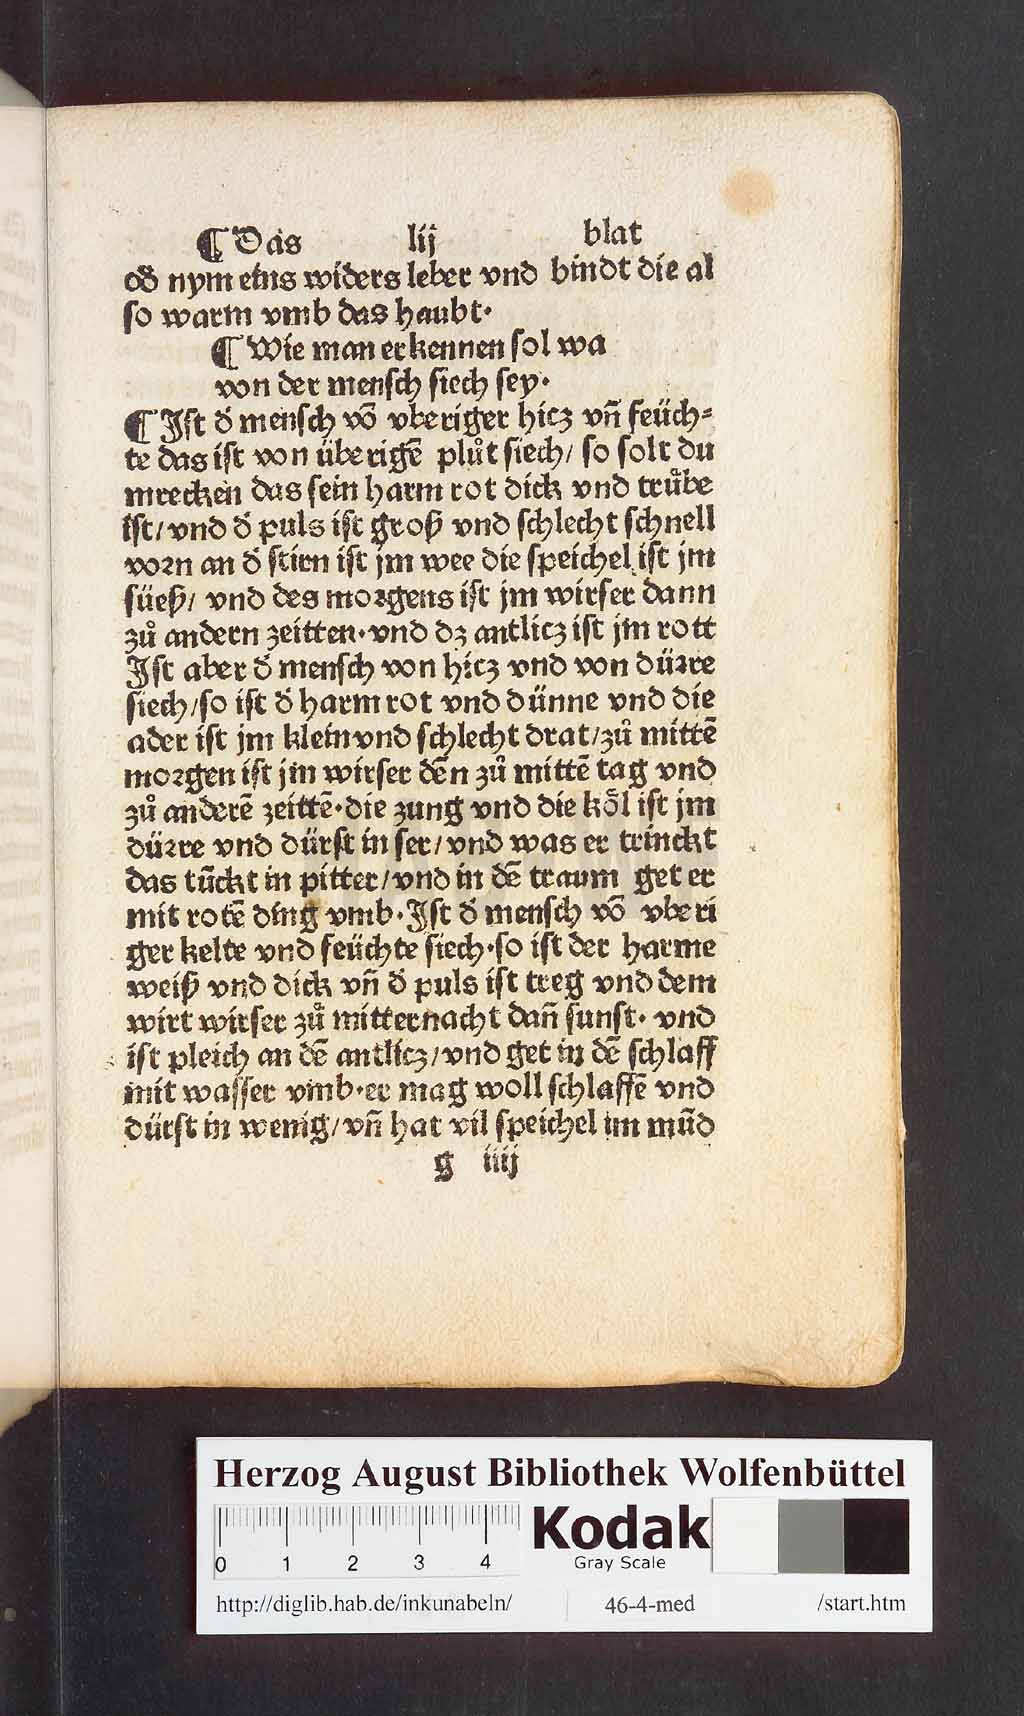 ¶ Das lij blat
od̕ nym eins widers leber vnd bindt die al
so warm vmb das haubt·
¶ Wie man erkennen sol wa
von der mensch siech sey·
¶ Ist d̕ mensch vō vberiger hicz vn̄ feüch⸗
te das ist von überigē plůt siech/ so solt du
mrecken das sein harm rot dick vnd trüͤbe
ist/ vnd d̕ puls ist groß vnd schlecht schnell
vorn an d̕ stirn ist jm wee die speichel ist jm
süeß/ vnd des morgens ist jm wirser dann
zů andern zeitten·vnd dz antlicz ist jm rott
Ist aber d̕ mensch von hicz vnd von dürre
siech/so ist d̕ harm rot vnd dünne vnd die
ader ist jm klein vnd schlecht drat/zů mittē
morgen ist jm wirser dēn zů mittē tag vnd
zů anderē zeittē·die zung vnd die köl ist jm
dürre vnd dürst in ser/ vnd was er trinckt
das tūckt in pitter/vnd in dē traum get er
mit rotē ding vmb·Ist d̕ mensch vō vberi
ger kelte vnd feüchte siech·so ist der harme
weiß vnd dick vn̄ d̕ puls ist treg vnd dem
wirt wirser zů mitternacht dan̄ sunst· vnd
ist pleich an dē antlicz/vnd get in dē schlaff
mit wasser vmb·er mag woll schlaffē vnd
dürst in wenig/vn̄ hat vil speichel im mūd
g iiij
Herzog August Bibliothek Wolfenbüttel
0 1 2 3 4
Kodak
Gray Scale
http://diglib.hab.de/inkunabeln/ 46-4-med /start.htm